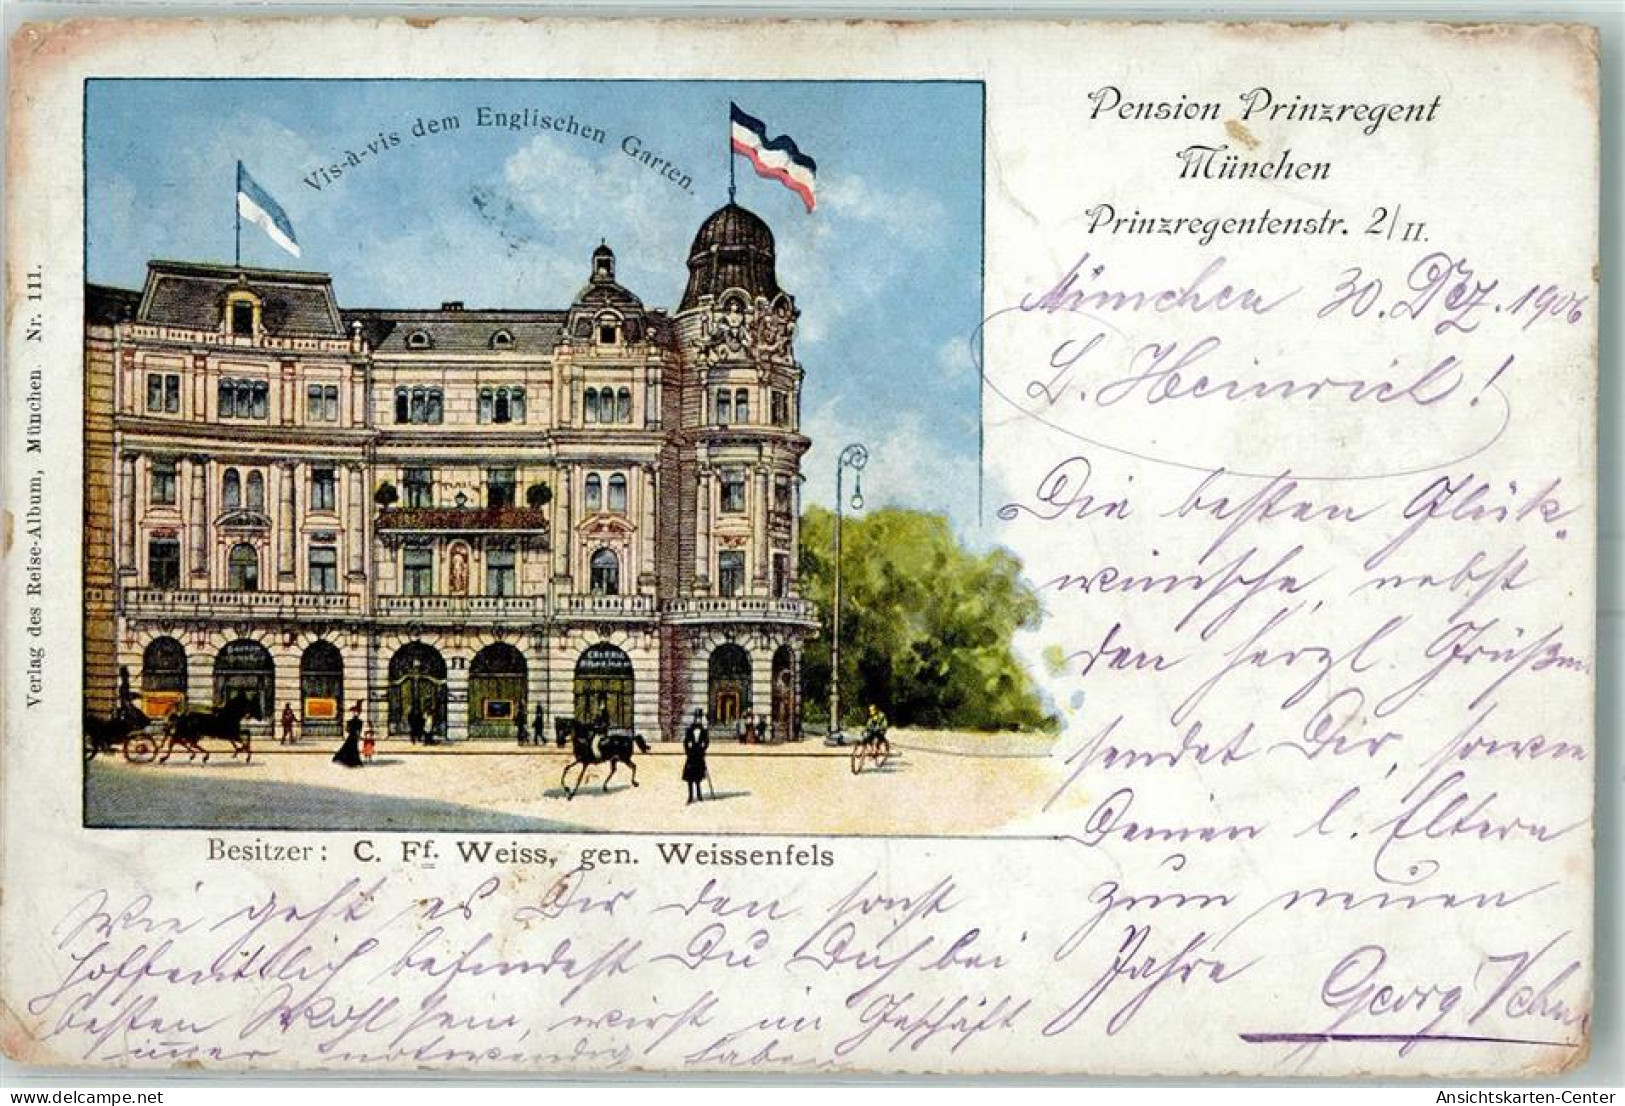 Vis-à-vis dem Englischen Garten.
Pension Prinzregent
München
Prinzregentenstr. 2/II.
Verlag des Reise-Album, München. Nr. 111.
Besitzer: C. Ff. Weiss, gen. Weissenfels
München 30. Dez. 1906
L. Heinrich!
Die besten Glück-
wünsche, nebst
den herzl. Grüßen
sendet Dir, sowie
Deinen l. Eltern
zum neuen
Jahre
Georg
Wie geht es Dir den sonst
hoffentlich befindest Du Dich bei
besten Wohlsein, wirst im Geschäft
immer notwendig haben
Ansichtskarten-Center
hip.com